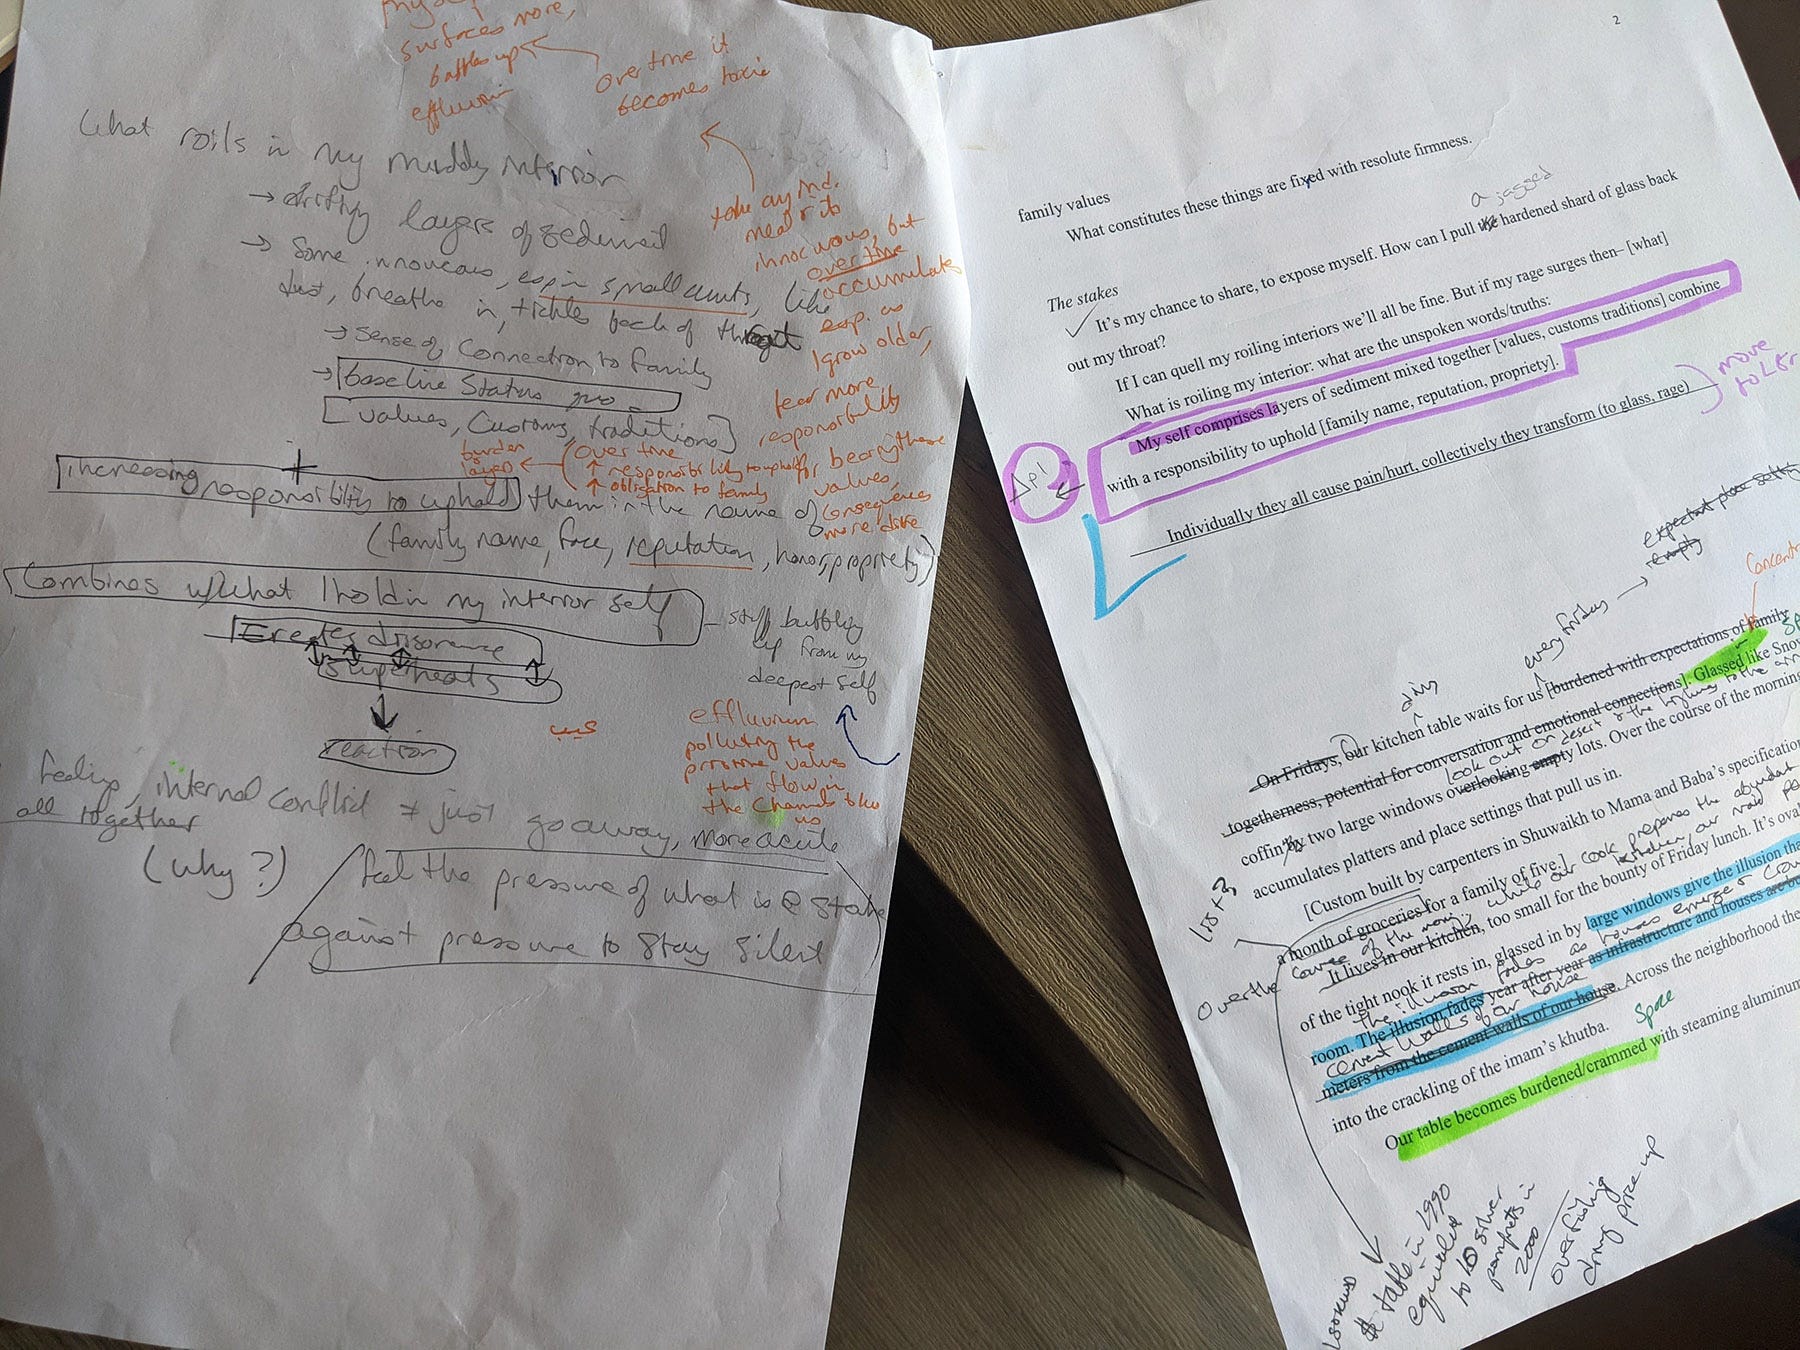 surfaces more,
bubbles up
effluvium
over time it
becomes toxic
What roils in my muddy interior
→ drifting layers of sediment
→ Some innocuous, esp in small amts, like
dust, breathe in, tickles back of throat
→ sense of connection to family
→ baseline status quo
[values, customs, traditions]
+
increasing responsibility to uphold them in the name of
(family name, face, reputation, honor, propriety)
Combines w/ what I hold in my interior self
Creates dissonance
superheats
reaction
stuff bubbling
up from my
deepest self
feeling, internal conflict ≠ just go away, more acute
all together
(why?)
feel the pressure of what is @ stake
against pressure to stay silent
take any ind.
innocuous, but
over time
accumulates
esp. as
I grow older,
fear more,
responsibility
for bearing these
values,
consequences
more dire
burden
layers
over time
↑ responsibility to uphold
↑ obligation to family
عيب
effluvium
polluting the
pristine values
that flow in
the channels to
us
2
family values
What constitutes these things are fixed with resolute firmness.
a jagged
The stakes
It's my chance to share, to expose myself. How can I pull the hardened shard of glass back
out my throat?
If I can quell my roiling interiors we'll all be fine. But if my rage surges then– [what]
What is roiling my interior: what are the unspoken words/truths:
My self comprises layers of sediment mixed together [values, customs traditions] combine
with a responsibility to uphold [family name, reputation, propriety].
Individually they all cause pain/hurt, collectively they transform (to glass, rage)
move
expectant place setting
empty
every friday
On Fridays, our kitchen table waits for us [burdened with expectations of family
togetherness, potential for conversation and emotional connections]. Glassed in like Snow
look out on desert & the highway to the
coffin by two large windows overlooking empty lots. Over the course of the morning
accumulates platters and place settings that pull us in.
[Custom built by carpenters in Shuwaikh to Mama and Baba's specification
cook prepares the abundant
a month of groceries for a family of five.]
Over the course of the morning, while our
kitchen, our
It lives in our kitchen, too small for the bounty of Friday lunch. It's oval
of the tight nook it rests in, glassed in by large windows give the illusion
the illusion fades as houses emerge &
room. The illusion fades year after year as infrastructure and houses are
cement walls of our house
meters from the cement walls of our house. Across the neighborhood the
into the crackling of the imam's khutba.
Space
Our table becomes burdened/crammed with steaming aluminum
$ table in 1990
equivalent
to 10 silver
pomfrets in
2000
overfishing
drove price up